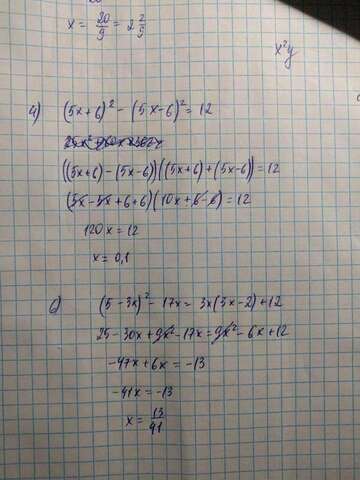 x = 20/9 = 2 2/9
x²y
4) (5x+6)² - (5x-6)² = 12
((5x+6) - (5x-6))((5x+6) + (5x-6)) = 12
(5x-5x+6+6)(10x+6-6) = 12
120x = 12
x = 0,1
6) (5-3x)² - 17x = 3x(3x-2)+12
25 - 30x + 9x² - 17x = 9x² - 6x + 12
-47x + 6x = -13
-41x = -13
x = 13/41